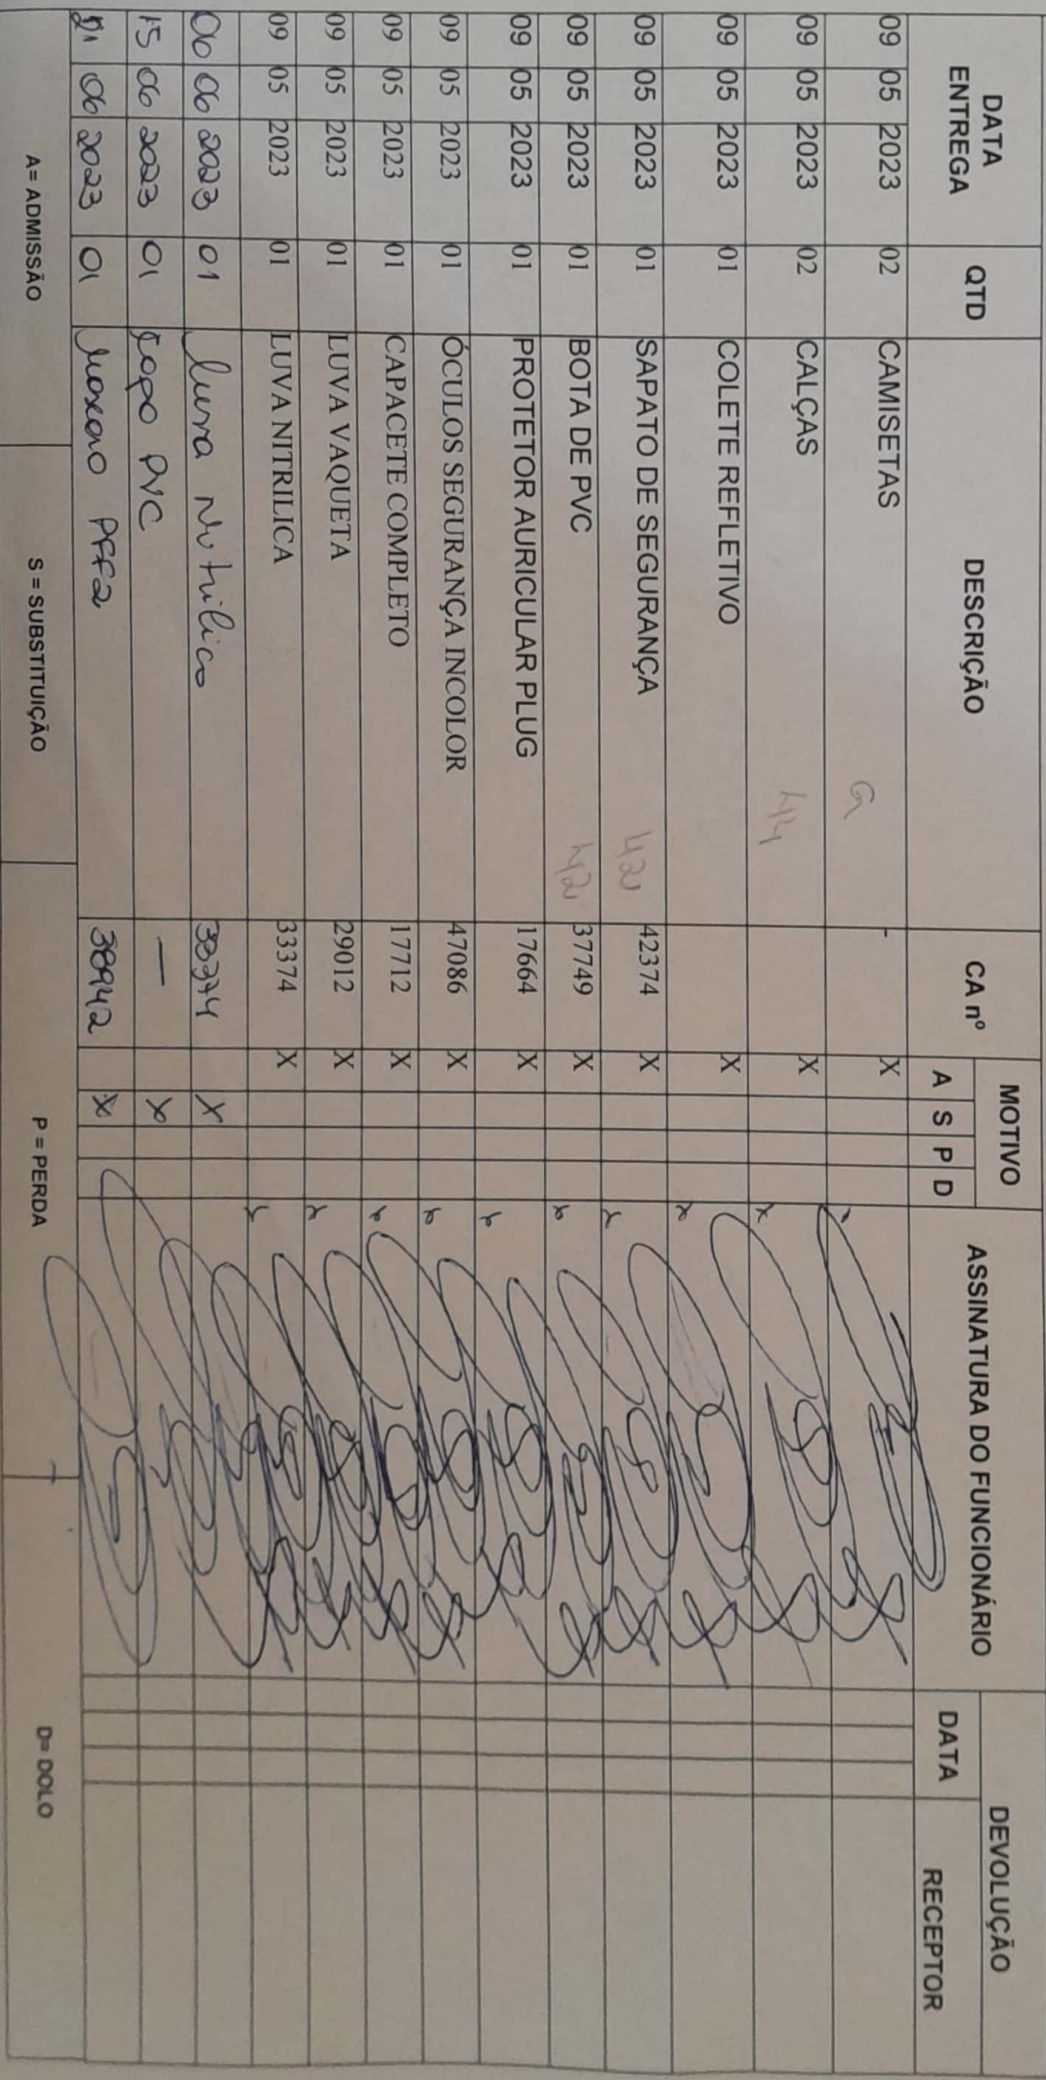 DATA ENTREGA QTD DESCRIÇÃO CA nº MOTIVO A S P D ASSINATURA DO FUNCIONÁRIO DEVOLUÇÃO DATA RECEPTOR
09 05 2023 02 CAMISETAS G - X
09 05 2023 02 CALÇAS 44 X
09 05 2023 01 COLETE REFLETIVO X
09 05 2023 01 SAPATO DE SEGURANÇA 42 42374 X
09 05 2023 01 BOTA DE PVC 42 37749 X
09 05 2023 01 PROTETOR AURICULAR PLUG 17664 X
09 05 2023 01 ÓCULOS SEGURANÇA INCOLOR 47086 X
09 05 2023 01 CAPACETE COMPLETO 17712 X
09 05 2023 01 LUVA VAQUETA 29012 X
09 05 2023 01 LUVA NITRILICA 33374 X
06 06 2023 01 luva Nitrilica 33374 X
15 06 2023 01 Capa PVC — X
21 06 2023 01 PFF2 38942 X
A= ADMISSÃO S = SUBSTITUIÇÃO P = PERDA D= DOLO